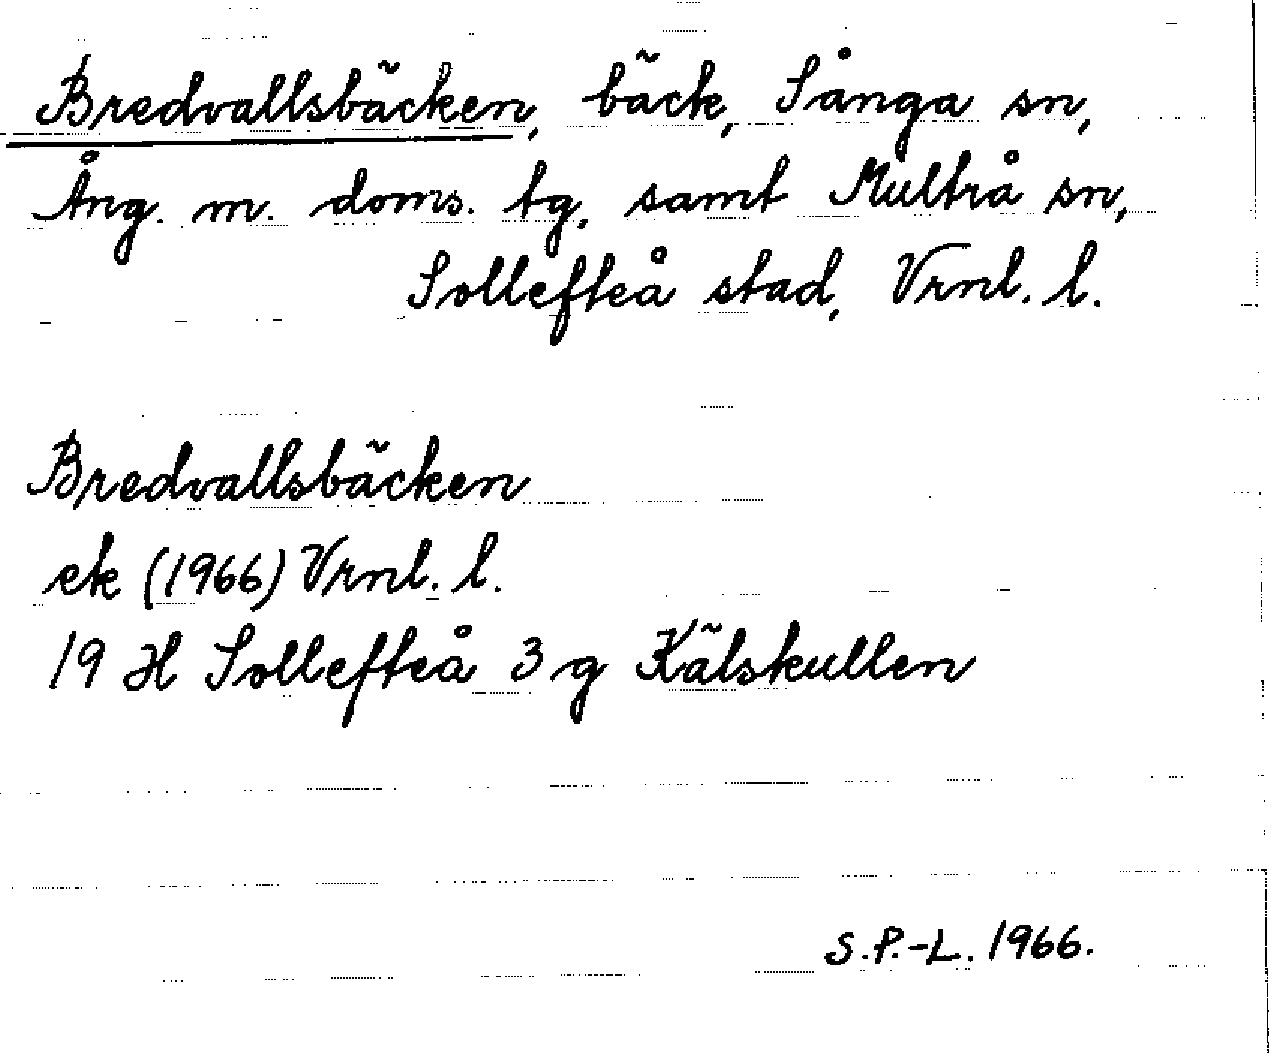 Bredvallsbäcken, bäck, Sånga sn,
Ång. m. doms. tg. samt Multrå sn,
Sollefteå stad, Vrnl. l.
Bredvallsbäcken
ek (1966) Vrnl. l.
19 H Sollefteå 3 g Kälskullen
S.P.-L. 1966.